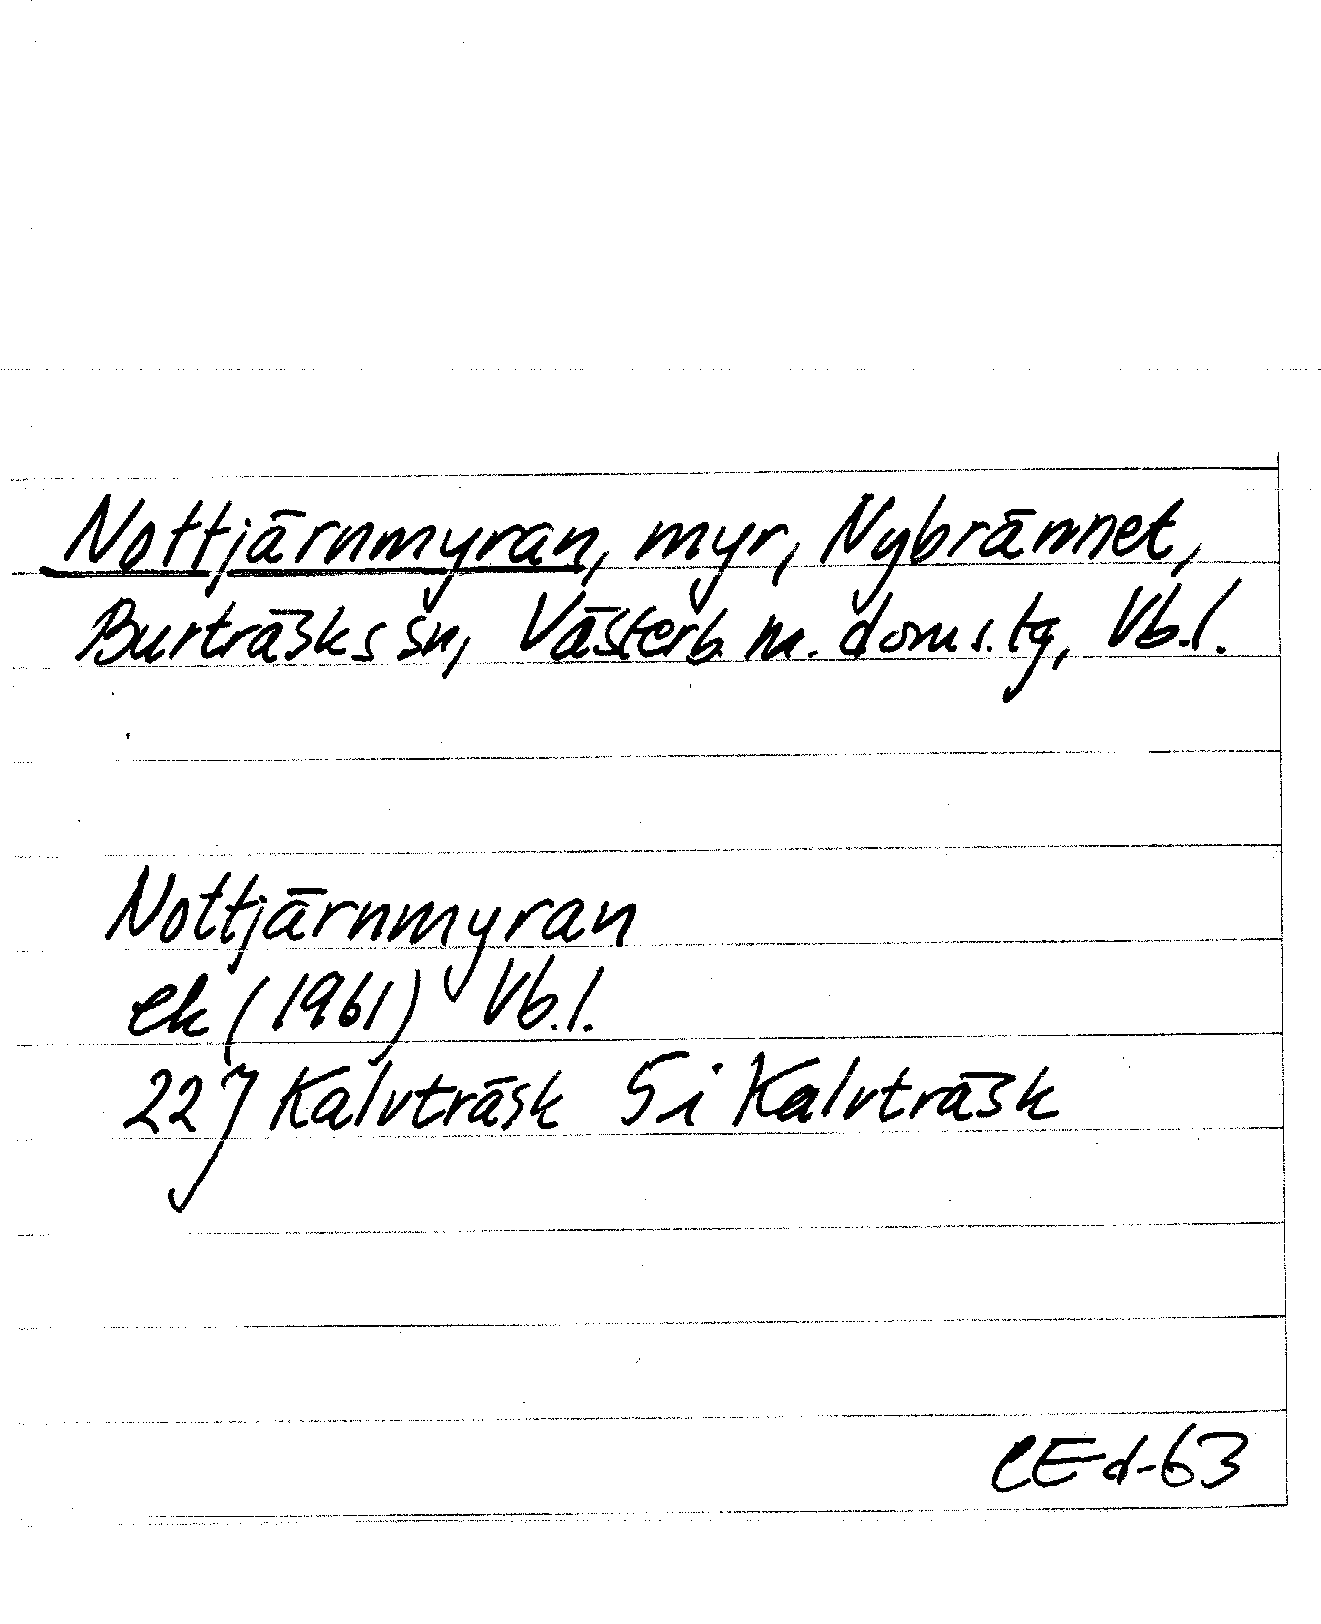 Nottjärnmyran, myr, Nybrännet,
Burträsks sn, Västerb. m. doms.tg, Vb.l.
Nottjärnmyran
ek (1961) Vb.l.
22J Kalvträsk 5i Kalvträsk
CEd-63